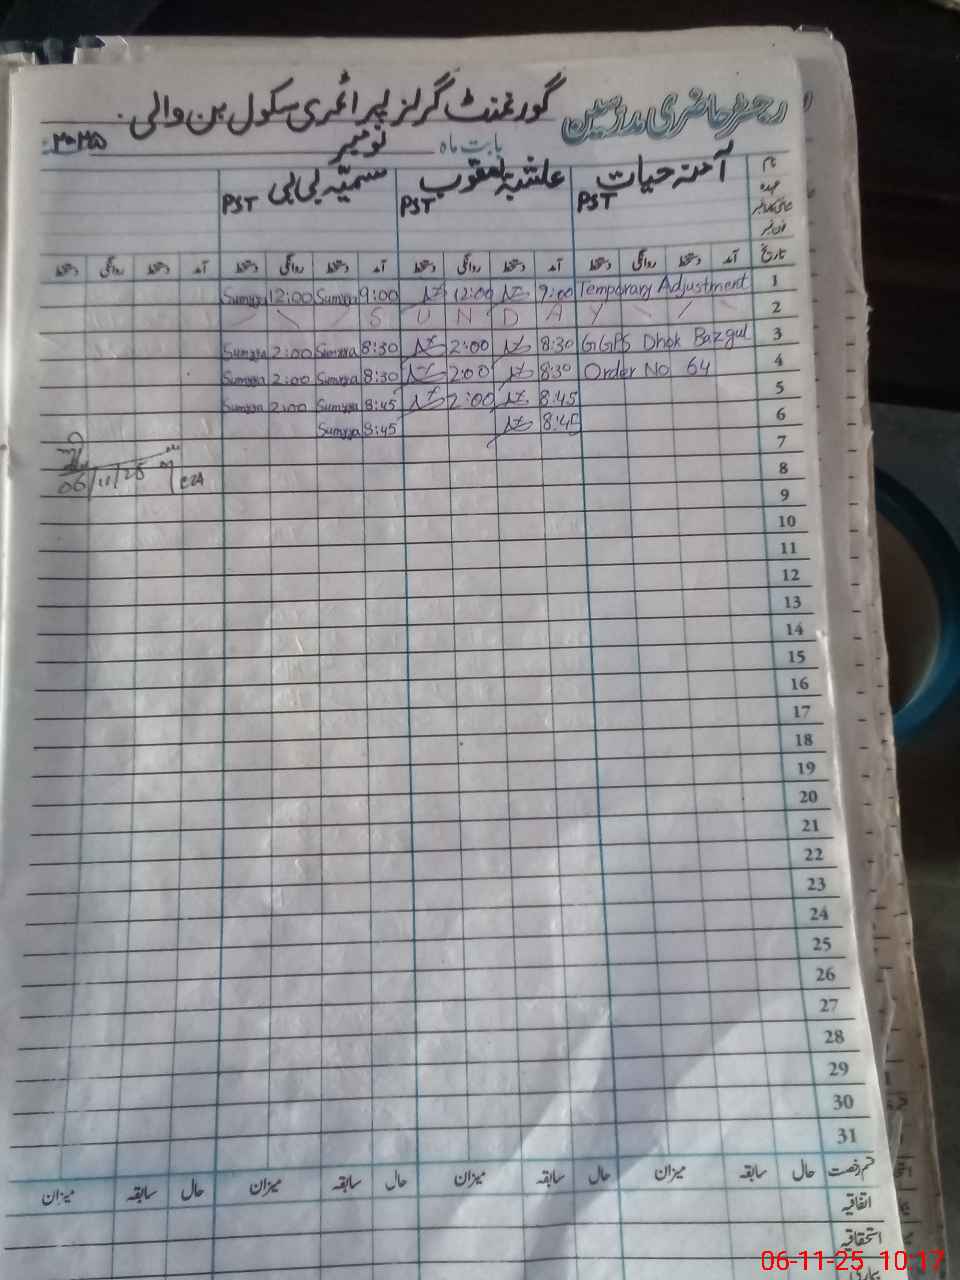 رجسٹر حاضری مدرسین گورنمنٹ گرلز پرائمری سکول بن والی
بابت ماہ نومبر ۲۰۲۵
نام آمنہ حیات علشبہ یعقوب سمیّہ بی بی
عہدہ PST PST PST
تاریخ آمد دستخط روانگی دستخط آمد دستخط روانگی دستخط آمد دستخط روانگی دستخط آمد دستخط روانگی دستخط
Sumyya 12:00 Sumyya 9:00 12:00 9:00 Temporary Adjustment 1
S U N D A Y 2
Sumyya 2:00 Sumyya 8:30 2:00 8:30 GGPS Dhok Bazgul 3
Sumyya 2:00 Sumyya 8:30 2:00 8:30 Order No 64 4
Sumyya 2:00 Sumyya 8:45 2:00 8:45 5
Sumyya 8:45 8:45 6
7
06/11/25 8
9
10
11
12
13
14
15
16
17
18
19
20
21
22
23
24
25
26
27
28
29
30
31
قسم رخصت حال سابقہ میزان حال سابقہ میزان حال سابقہ میزان حال سابقہ میزان
اتفاقیہ
استحقاقیہ
بیماری
06-11-25 10:17